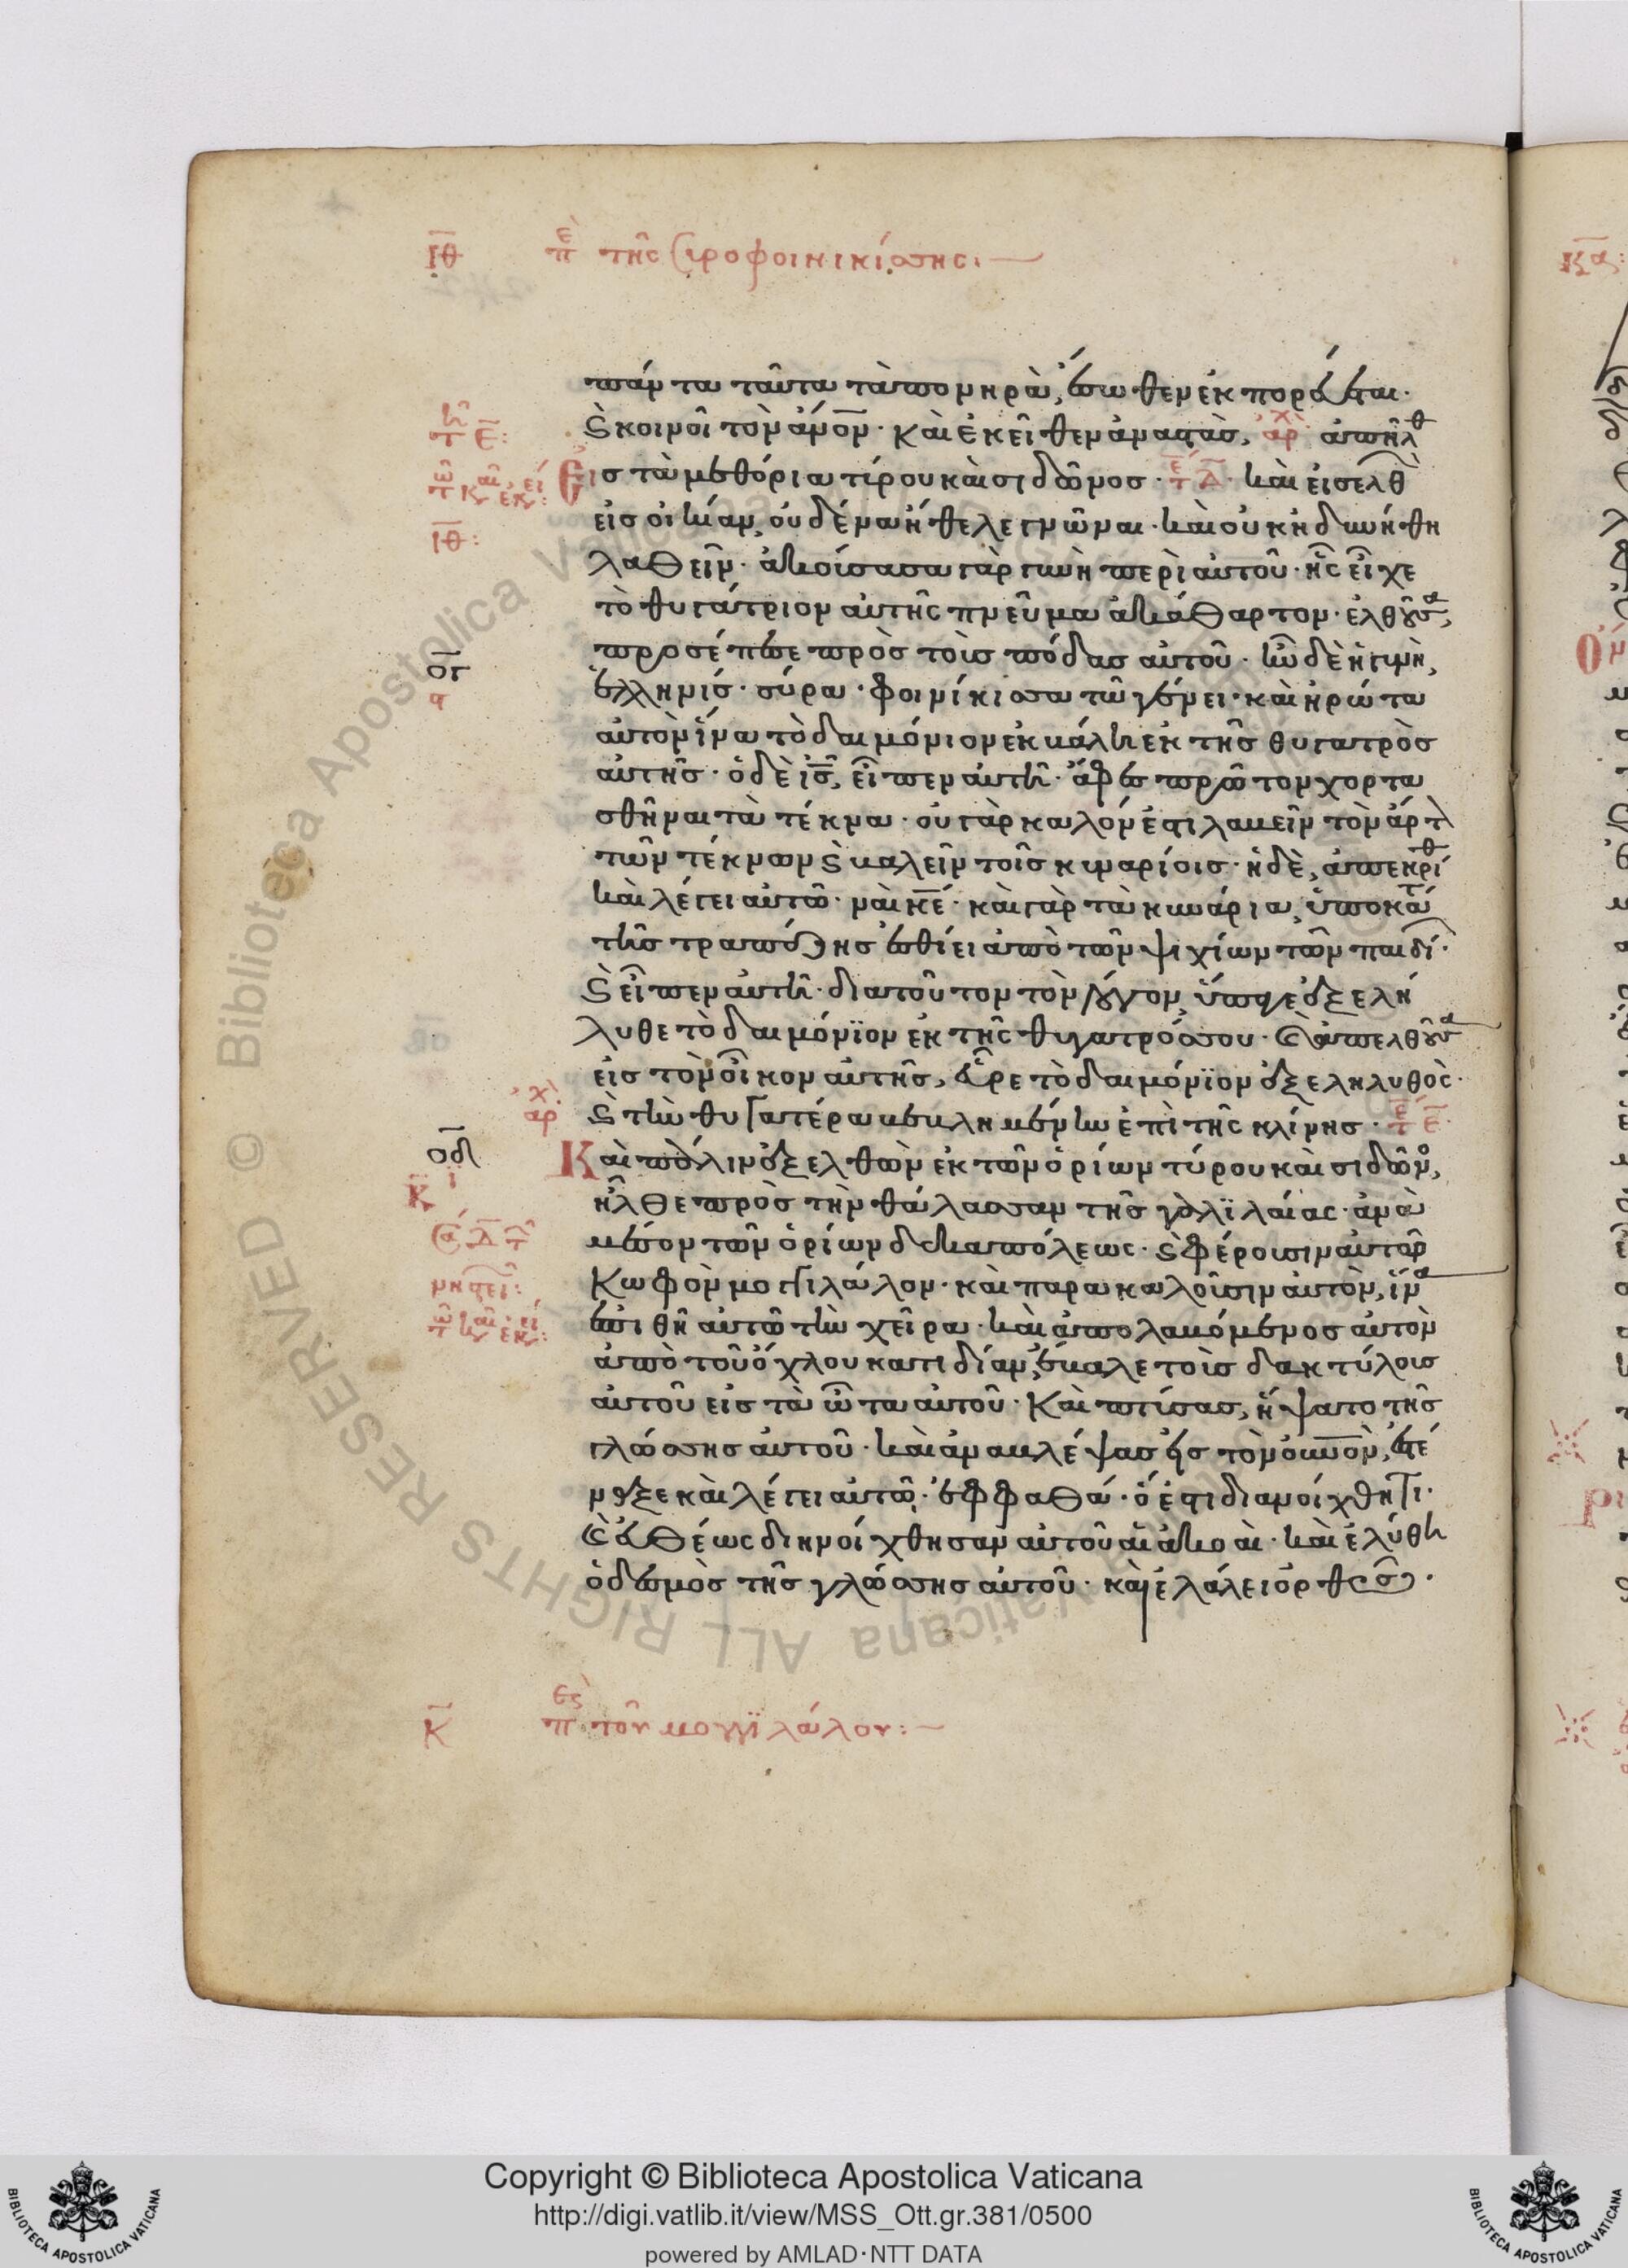 ΙΘ πε τῆς Συροφοινικίσσης·
πάντα ταῦτα τὰ πονηρὰ, ἔσωθεν ἐκπορεύεται·
ϛ κοινοῖ τὸν ἄνον· καὶ ἐκεῖθεν ἀναστὰς, ἀρχ ἀπῆλθ
Εἰς τὰ μεθόρια τύρου καὶ σιδῶνος· καὶ εἰσελθ
εἰς οἰκίαν, οὐδένα ἤθελε γνῶναι· καὶ οὐκ ἠδυνήθη
λαθεῖν· ἀκούσασα γὰρ γυνὴ περὶ αὐτοῦ· ἧς εἶχε
τὸ θυγάτριον αὐτῆς πνεῦμα ἀκάθαρτον· ἐλθοῦσα,
προσέπεσε πρὸς τοὺς πόδας αὐτοῦ· ἦν δὲ ἡ γυνὴ,
ἑλληνίς· σύρα· φοινίκισσα τῶ γένει· καὶ ἠρώτα
αὐτὸν ἵνα τὸ δαιμόνιον ἐκβάλη ἐκ τῆς θυγατρὸς
αὐτῆς· ὁ δὲ ις, εἶπεν αὐτῆ· ἄφες πρῶτον χορτα
σθῆναι τὰ τέκνα· οὐ γὰρ καλόν ἐστι λαβεῖν τὸν ἄρτ
τῶν τέκνων ϛ βαλεῖν τοῖς κυναρίοις· ἡ δὲ, ἀπεκρίθ
καὶ λέγει αὐτῶ· ναὶ κε· καὶ γὰρ τὰ κυνάρια, ὑποκάτ
τῆς τραπέζης ἐσθίει ἀπὸ τῶν ψιχίων τῶν παιδί·
ϛ εἶπεν αὐτῆ· διὰ τοῦτον τὸν λόγον, ὕπαγε ἐξελή
λυθε τὸ δαιμόνϊον ἐκ τῆς θυγατρός σου· καὶ ἀπελθοῦσα
εἰς τὸν οἶκον αὐτῆς, εὗρε τὸ δαιμόνϊον ἐξεληλυθὸς·
ϛ τὴν θυγατέρα βεβλημένην ἐπὶ τῆς κλίνης·
οδ Καὶ πάλιν ἐξελθὼν ἐκ τῶν ὁρίων τύρου καὶ σιδῶνο,
ἦλθε πρὸς τὴν θάλασσαν τῆς γαλϊλαίας· ἀνὰ
μέσον τῶν ὁρίων δεκαπόλεως· ϛ φέρουσιν αὐτῶ
Κωφὸν μογιλάλον· καὶ παρακαλοῦσιν αὐτὸν, ἵνα
ἐπιθῆ αὐτῶ τὴν χεῖρα· καὶ ἀπολαβόμενος αὐτὸν
ἀπὸ τοῦ ὄχλου κατιδίαν, ἔβαλε τοὺς δακτύλους
αὐτοῦ εἰς τὰ ὦτα αὐτοῦ· Καὶ πτύσας, ἥψατο τῆς
γλώσσης αὐτοῦ· καὶ ἀναβλέψας εἰς τὸν οὐνον, ἐστέ
ναξε καὶ λέγει αὐτῶ· ἐφφαθά· ὅ ἐστι διανοίχθητι·
Καὶ εὐθέως διηνοίχθησαν αὐτοῦ αἱ ἀκοαὶ· καὶ ἐλύθη
ὁ δεσμὸς τῆς γλώσσης αὐτοῦ· καὶ ἐλάλει ὀρθῶς·
Κ πε τοῦ μογγϊλάλου:
Copyright © Biblioteca Apostolica Vaticana
http://digi.vatlib.it/view/MSS_Ott.gr.381/0500
powered by AMLAD·NTT DATA
BIBLIOTECA APOSTOLICA VATICANA
BIBLIOTECA APOSTOLICA VATICANA
Biblioteca Apostolica Vaticana ALL RIGHTS RESERVED ©